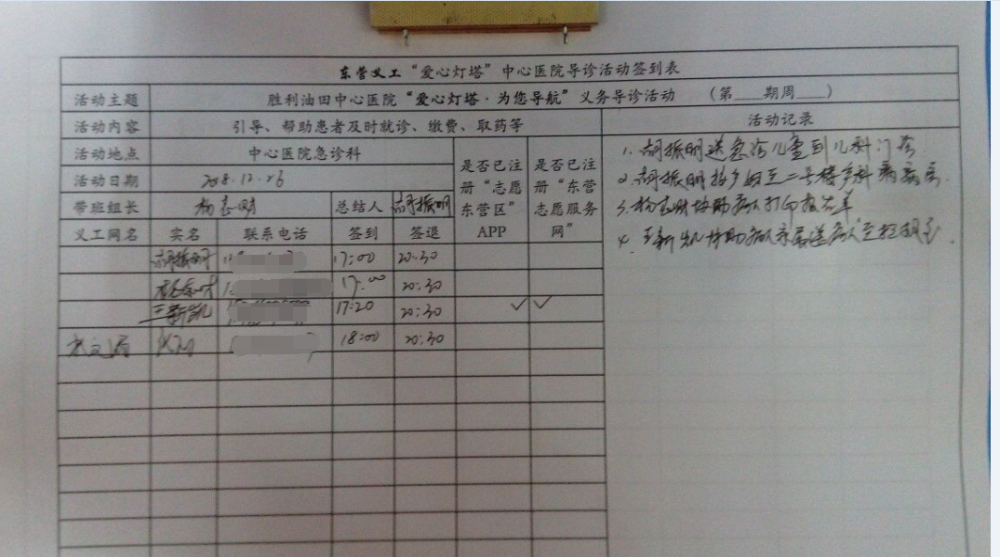 东营义工“爱心灯塔”中心医院导诊活动签到表
活动主题 胜利油田中心医院“爱心灯塔·为您导航”义务导诊活动 （第____期周____）
活动内容 引导、帮助患者及时就诊、缴费、取药等 活动记录
活动地点 中心医院急诊科 是否已注册“志愿东营区”APP 是否已注册“东营志愿服务网”
活动日期 2018.12.26
带班组长 总结人 胡振明
义工网名 实名 联系电话 签到 签退
胡振明 17:00 20:30
17:00 20:30
王新凯 17:20 20:30 ✓ ✓
18:00 20:30
1、胡振明送急诊儿童到儿科门诊
2、胡振明 二号楼
3、协助病人打印报告单
4、王新凯协助病人家属送病人至